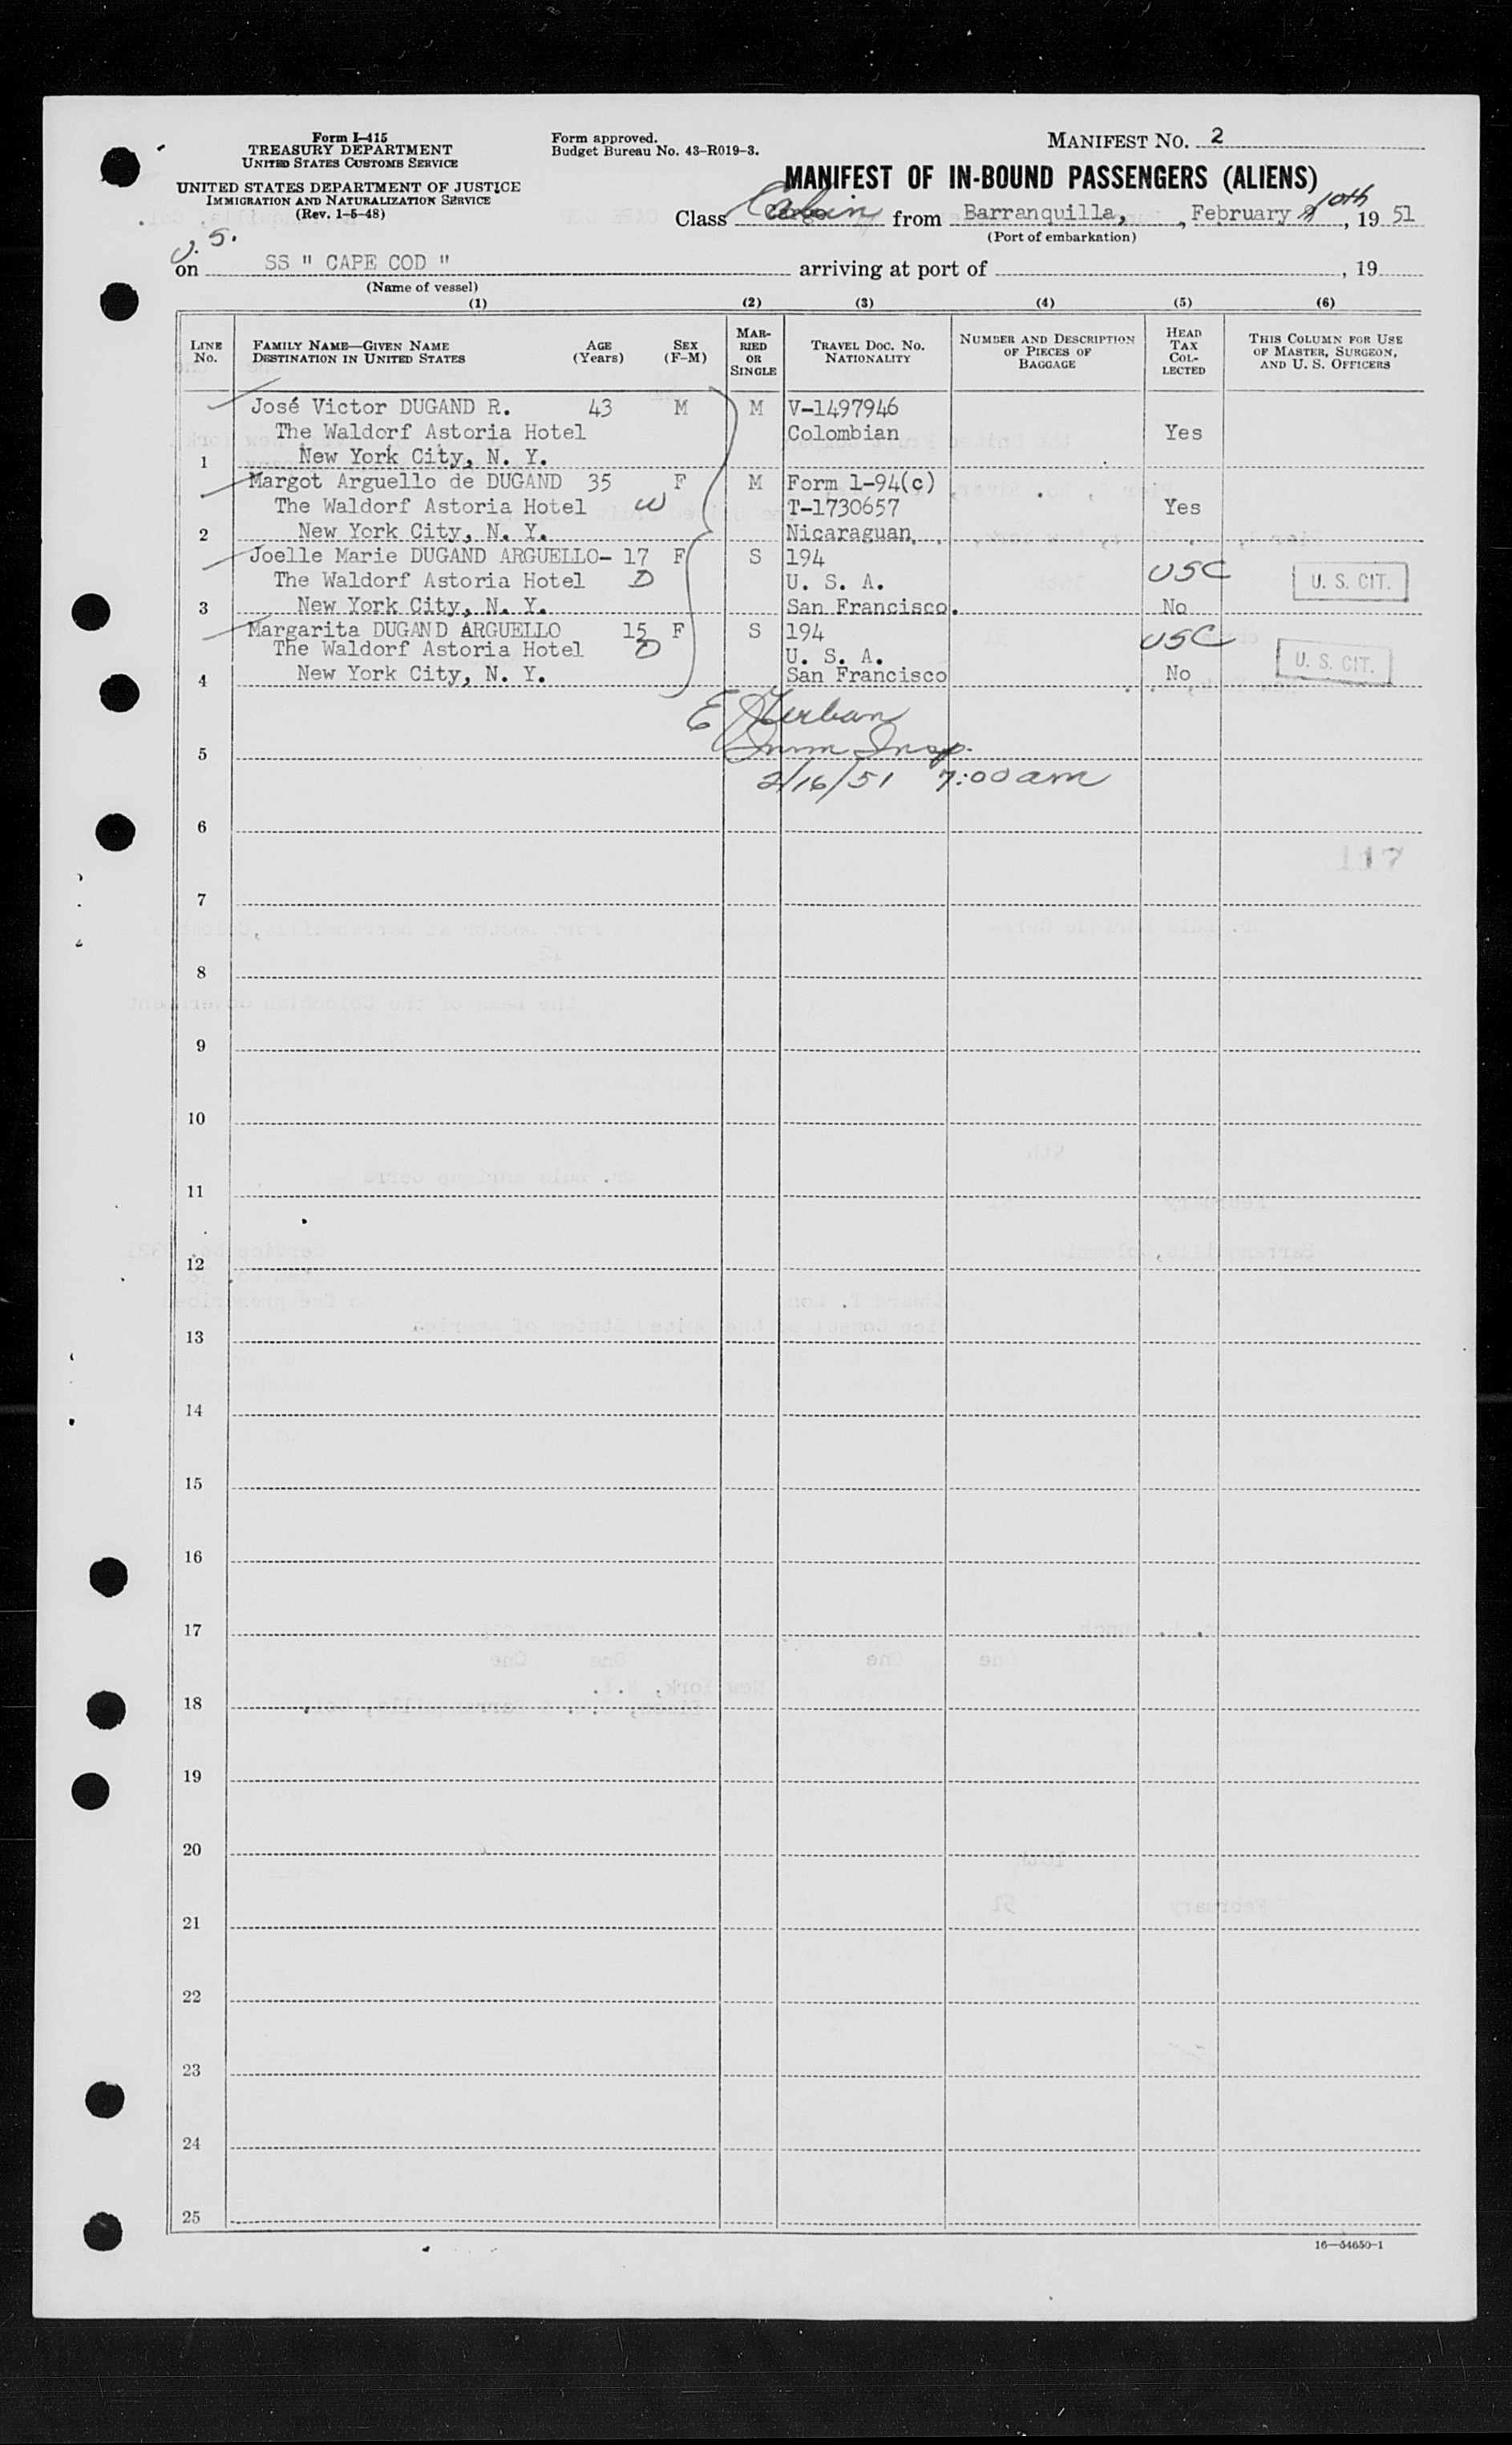 Form I-415
TREASURY DEPARTMENT
UNITED STATES CUSTOMS SERVICE
UNITED STATES DEPARTMENT OF JUSTICE
IMMIGRATION AND NATURALIZATION SERVICE
(Rev. 1-5-48)
Form approved.
Budget Bureau No. 43-R019-3.
MANIFEST NO. 2
MANIFEST OF IN-BOUND PASSENGERS (ALIENS)
Class Cabin from Barranquilla, , February 10th, 19 51
(Port of embarkation)
U.S.
on SS " CAPE COD " arriving at port of , 19
(Name of vessel)
(1) (2) (3) (4) (5) (6)
LINE No. FAMILY NAME—GIVEN NAME DESTINATION IN UNITED STATES AGE (Years) SEX (F-M) MARRIED OR SINGLE TRAVEL DOC. NO. NATIONALITY NUMBER AND DESCRIPTION OF PIECES OF BAGGAGE HEAD TAX COLLECTED THIS COLUMN FOR USE OF MASTER, SURGEON, AND U. S. OFFICERS
José Victor DUGAND R. 43 M M V-1497946
The Waldorf Astoria Hotel Colombian Yes
1 New York City, N. Y.
Margot Arguello de DUGAND 35 F M Form 1-94(c)
The Waldorf Astoria Hotel W T-1730657 Yes
2 New York City, N. Y. Nicaraguan
Joelle Marie DUGAND ARGUELLO- 17 F S 194
The Waldorf Astoria Hotel D U. S. A. USC U. S. CIT.
3 New York City, N. Y. San Francisco. No
Margarita DUGAND ARGUELLO 15 F S 194
The Waldorf Astoria Hotel D U. S. A. USC U. S. CIT.
4 New York City, N. Y. San Francisco No
Imm Insp.
5
2/16/51 7:00 am
6
117
7
8
9
10
11
12
13
14
15
16
17
18
19
20
21
22
23
24
25
16—54650-1